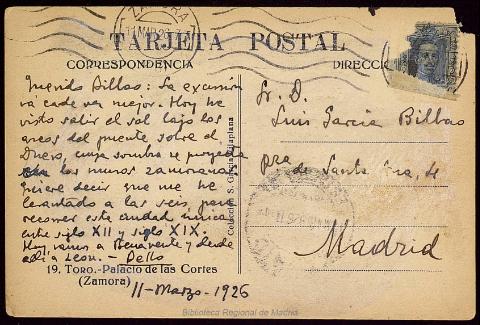 ZAMORA
11 MAR 26
TARJETA POSTAL
CORRESPONDENCIA
DIRECC
Querido Bilbao: La excursión
va cada vez mejor. Hoy he
visto salir el sol bajo los
arcos del puente sobre el
Duero, cuya sombra se proyecta
los muros zamoranos.
Quiere decir que me he
levantado a las seis, para
recorrer esta ciudad única
entre siglo XII y siglo XIX.
Hoy, vamos a Benavente y desde
León. -
19. TORO.-Palacio de las Cortes
(Zamora)
11-Marzo-1926
Colección S. García Vilaplana
Sr. D.
Luis García Bilbao
Pza
de Santa Ana, 4
Madrid
Biblioteca Regional de Madrid